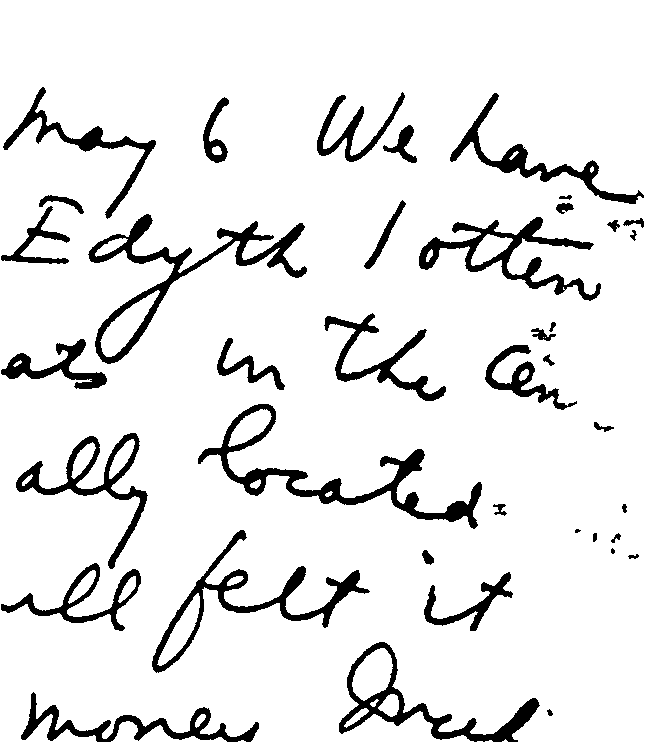 May 6 We have
Edyth I often
ats in the Cen
ally located
ill felt it
money